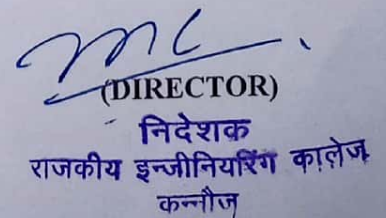 (DIRECTOR)
निदेशक
राजकीय इन्जीनियरिंग कालेज
कन्नौज